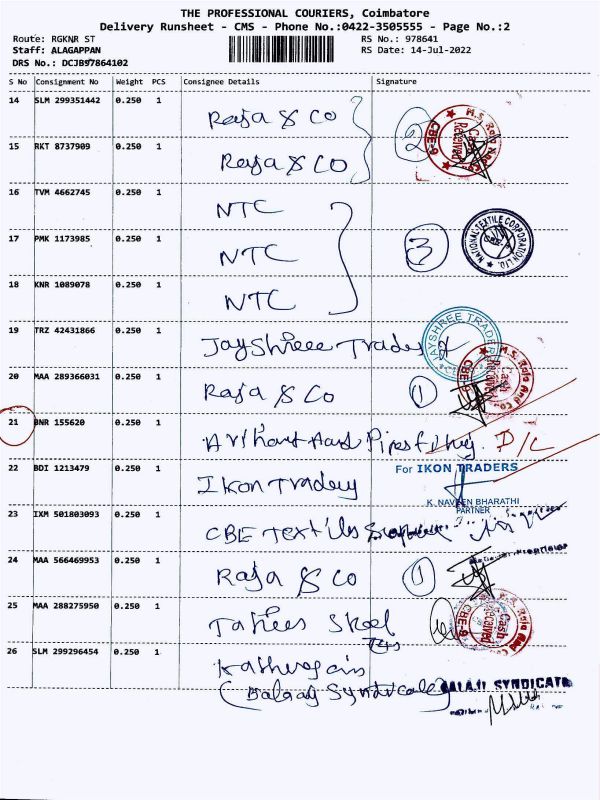 THE PROFESSIONAL COURIERS, Coimbatore
Delivery Runsheet - CMS - Phone No.:0422-3505555 - Page No.:2
Route: RGKNR ST RS No.: 978641
Staff: ALAGAPPAN RS Date: 14-Jul-2022
DRS No.: DCJB97864102
S No Consignment No Weight PCS Consignee Details Signature
14 SLM 299351442 0.250 1
Raja & Co
2
M.S. Raja And Co. Cash Received CBE-9
15 RKT 8737909 0.250 1
Raja & Co
16 TVM 4662745 0.250 1
NTC
17 PMK 1173985 0.250 1
NTC
3
NATIONAL TEXTILE CORPORATION LTD.
18 KNR 1089078 0.250 1
NTC
19 TRZ 42431866 0.250 1
Jayshreee Traders
JAYSHREE TRADERS
20 MAA 289366031 0.250 1
Raja & Co
1
M.S. Raja And Co. Cash Received CBE-9
21 BNR 155620 0.250 1
D/C
22 BDI 1213479 0.250 1
Ikon
For IKON TRADERS
K. NAVEEN BHARATHI
PARTNER
23 IXM 501803093 0.250 1
CBE
24 MAA 566469953 0.250 1
Raja & Co
1
25 MAA 288275950 0.250 1
Cash Received CBE-9
26 SLM 299296454 0.250 1
BALAJI SYNDICATE